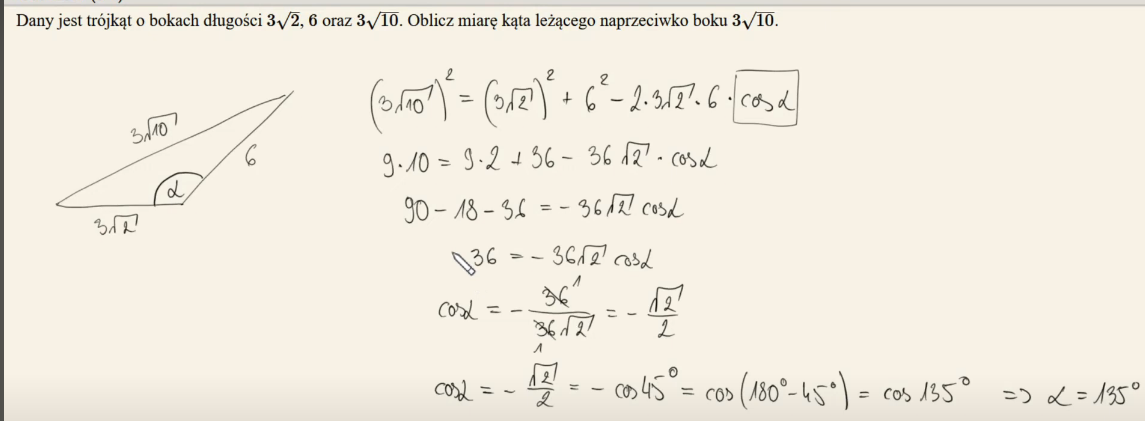 Dany jest trójkąt o bokach długości 3√2, 6 oraz 3√10. Oblicz miarę kąta leżącego naprzeciwko boku 3√10.
3√10
6
α
3√2
(3√10)² = (3√2)² + 6² - 2·3√2·6·cosα
9·10 = 9·2 + 36 - 36√2·cosα
90 - 18 - 36 = -36√2 cosα
36 = -36√2 cosα
cosα = -36 1/36√2 1 = -√2/2
cosα = -√2/2 = -cos45° = cos(180°-45°) = cos135° => α = 135°